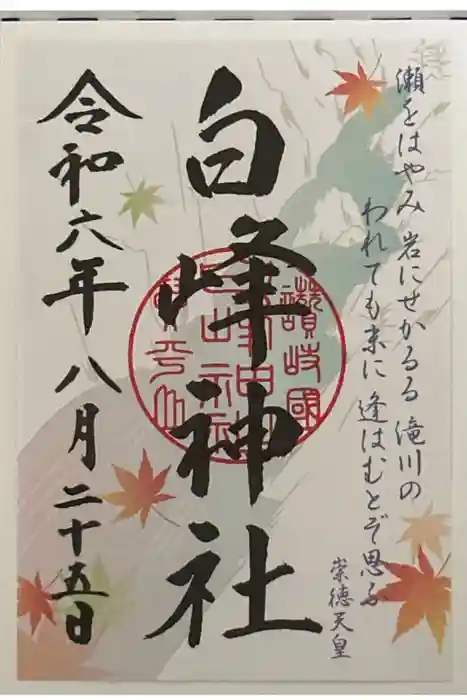 瀬をはやみ 岩にせかるる 滝川の
われても末に 逢はむとぞ思ふ
崇徳天皇
白峰神社
讃岐國
令和六年 八月 二十五日